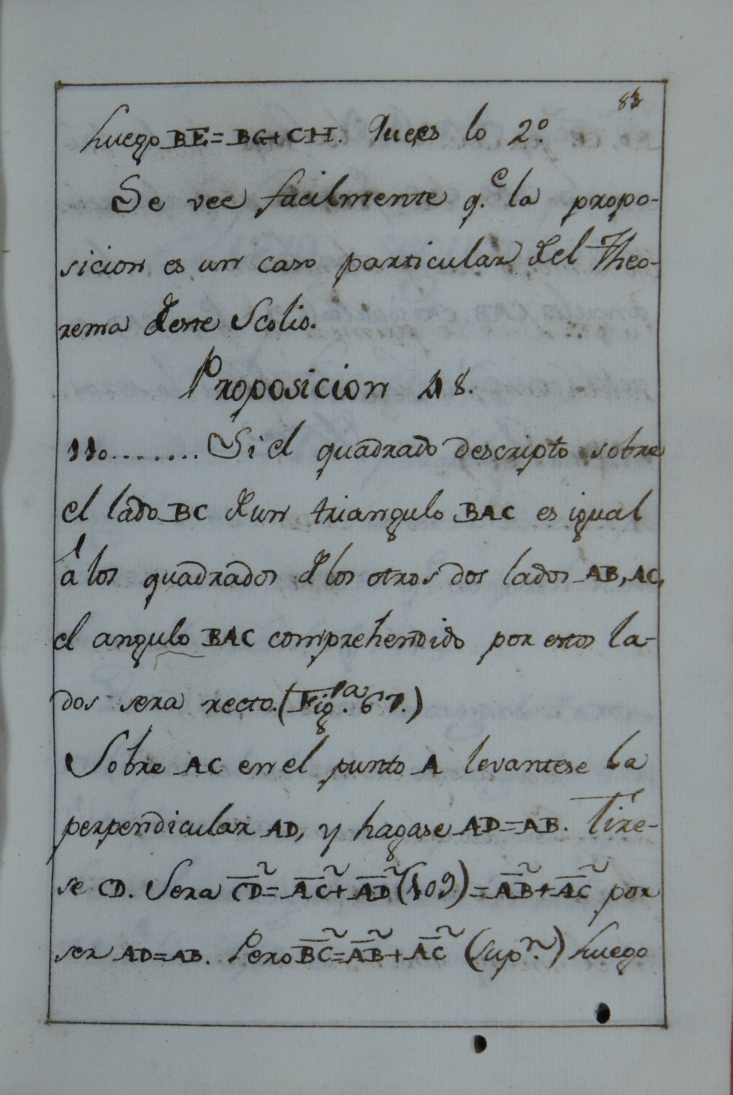 83
Luego BE=BG+CH. Que es lo 2º.
Se vee facilmente q.e la propo-
sicion es un caso particular del Theo-
rema deste Scolio.
Proposicion 48.
110........Si el quadrado descripto sobre
el lado BC de un triangulo BAC es igual
á los quadrados de los otros dos lados AB, AC,
el angulo BAC comprehendido por estos la-
dos sera recto. (Fig.ª 67.)
Sobre AC en el punto A levantese la
perpendicular AD, y hagase AD=AB. Tire-
se CD. Sera CD²=AC²+AD²(109)=AB²+AC² por
ser AD=AB. Pero BC²=AB²+AC² (sup.n) Luego